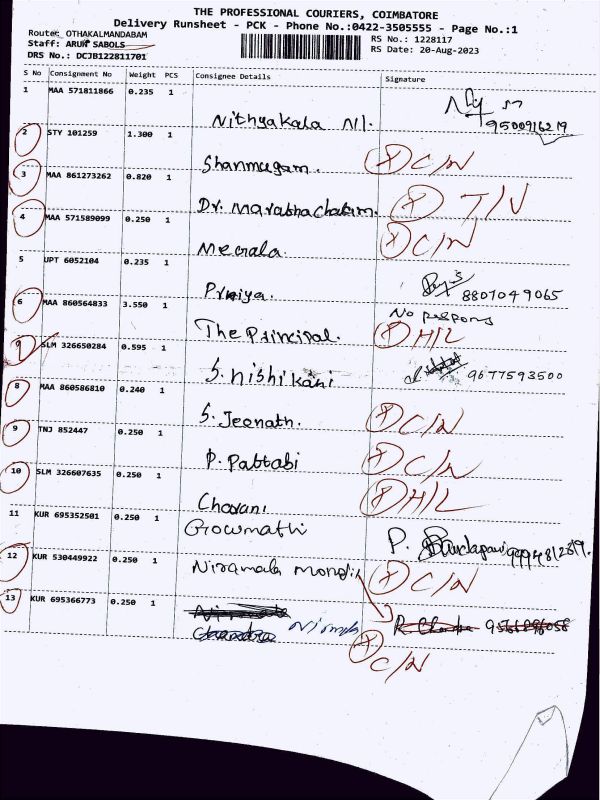 THE PROFESSIONAL COURIERS, COIMBATORE
Delivery Runsheet - PCK - Phone No.:0422-3505555 - Page No.:1
Route: OTHAKALMANDABAM
RS No.: 1228117
Staff: ARUN SABOLS
RS Date: 20-Aug-2023
DRS No.: DCJB122811701
S No Consignment No Weight PCS Consignee Details Signature
1 MAA 571811866 0.235 1
Nithyakala 9500916219
2 STY 101259 1.300 1
Shanmugam. X C/N
3 MAA 861273262 0.820 1
Dr. Marabhachalam. X T/V
4 MAA 571589099 0.250 1
Megala. X C/N
5 UPT 6052104 0.235 1
Priya. 8807049065
6 MAA 860564833 3.550 1
No respons
The Principal. X H/L
SLM 326650284 0.595 1
S. Nishikani 9677593500
8 MAA 860586810 0.240 1
S. Jeenath. X C/N
9 TNJ 852447 0.250 1
P. Pattabi X C/N
10 SLM 326607635 0.250 1
Charani X H/L
11 KUR 695352501 0.250 1
Gowmathi P.
12 KUR 530449922 0.250 1
Niramala X C/N
13 KUR 695366773 0.250 1
Nirmala
X C/N